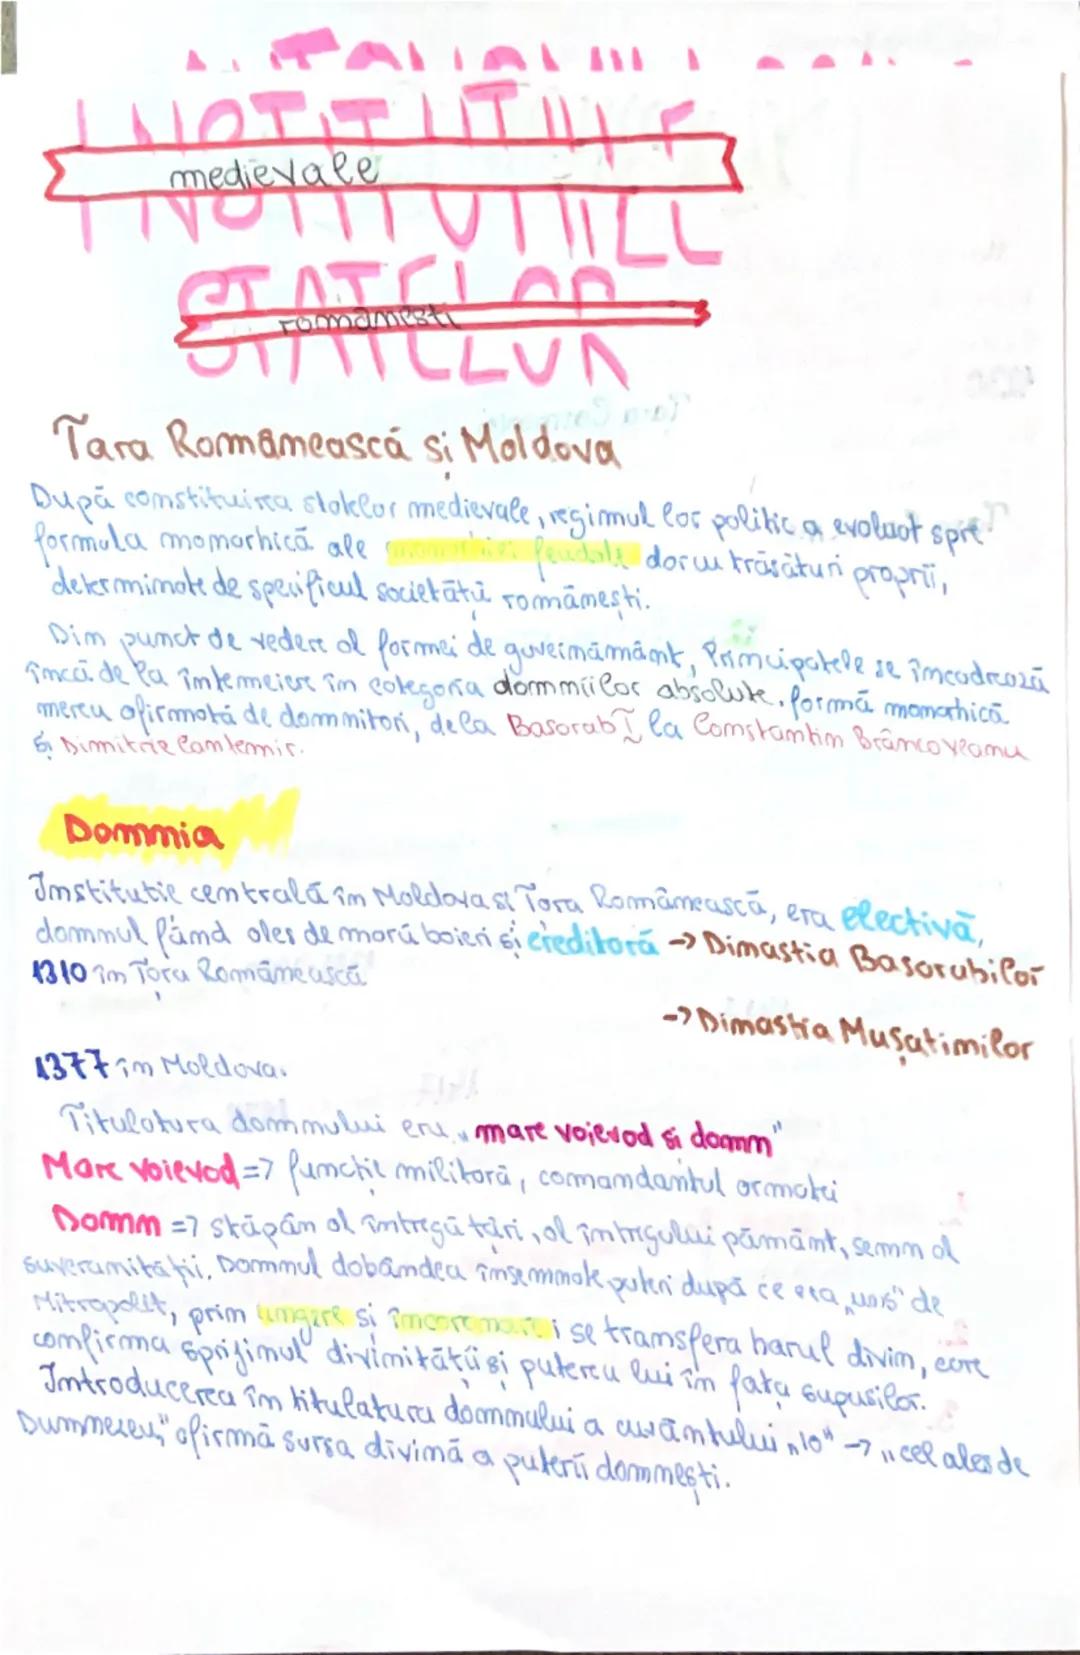 INSTITUȚIILE
medievale
STATELOR
românesti
Țara Românească si Moldova
După constituirea statelor medievale, regimul lor politic a evoluat spre
formula monarhică ale monarhiei feudale dar cu trăsături proprii,
determinate de specificul societății românești.
Din punct de vedere al formei de guvernământ, Principatele se încadrează
încă de la întemeiere în categoria domniilor absolute, formă monarhică
mereu afirmată de domnitori, de la Basarab I la Constantin Brâncoveanu
și Dimitrie Cantemir.
Domnia
Institutie centrală în Moldova si Țara Românească, era electivă,
domnul fiind ales de marii boieri și ereditară -> Dinastia Basarabilor
1310 în Țara Românească
-> Dinastia Mușatinilor
1377 în Moldova.
Titulatura domnului era „mare voievod si domn"
Mare voievod => funcție militară, comandantul armatei
Domn => stăpân al întregii țări, al întregului pământ, semn al
suveranității. Domnul dobândea însemnate puteri după ce era „uns" de
Mitropolit, prin ungere și încoronare i se transfera harul divin, care
confirma sprijinul divinității și puterea lui în fața supușilor.
Introducerea în titulatura domnului a cuvântului „IO" -> „cel ales de
Dumnezeu" afirmă sursa divină a puterii domnești.